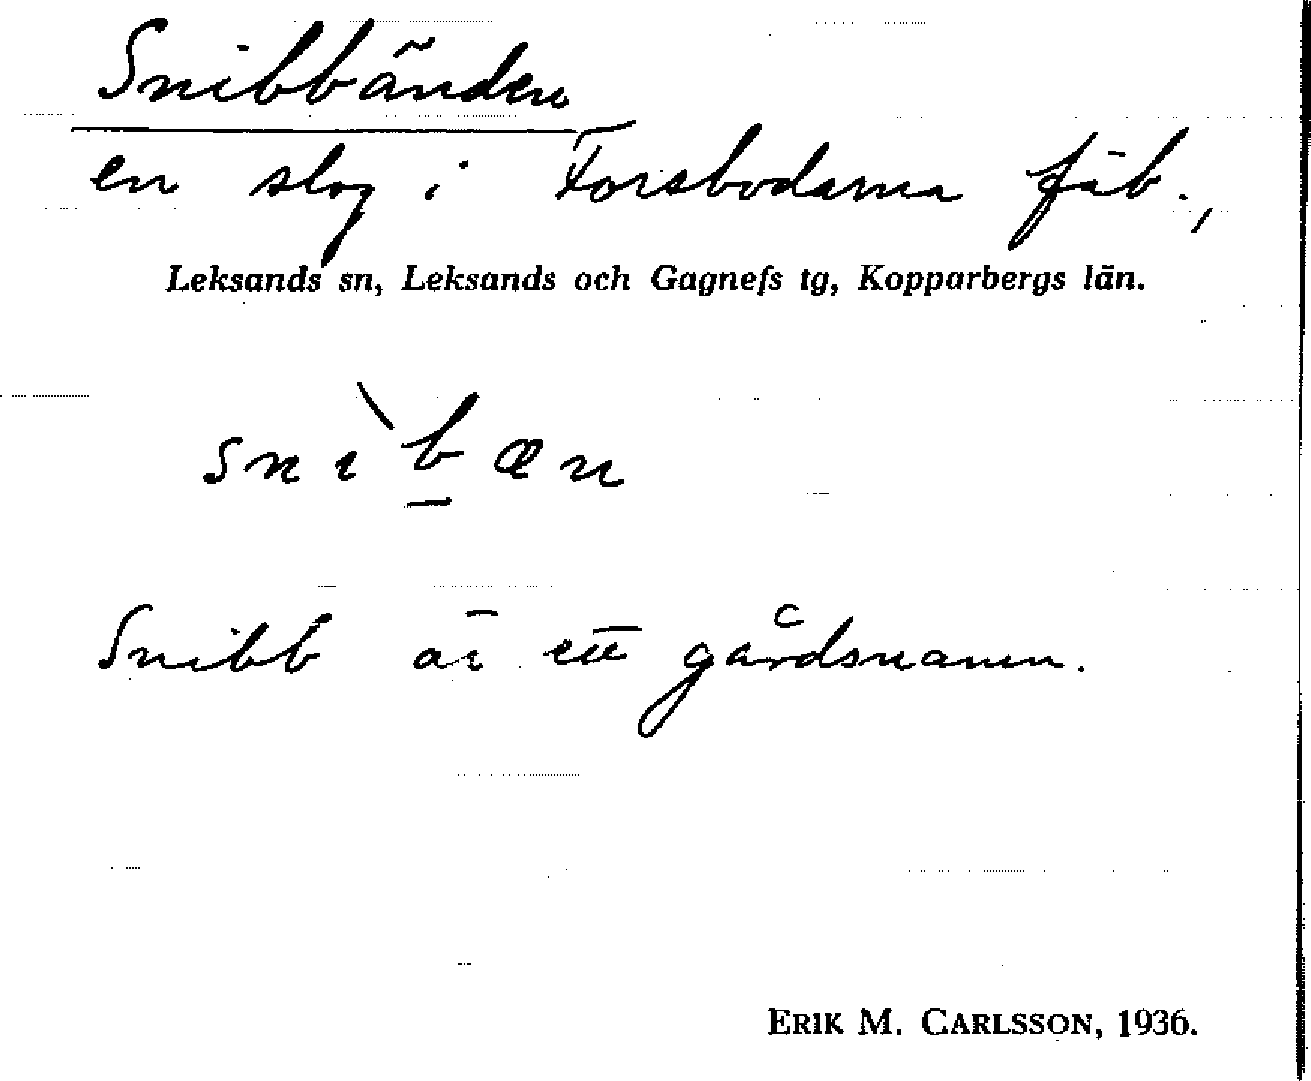 Snibbänden
en slog i Forsbodarna fäb.,
Leksands sn, Leksands och Gagnefs tg, Kopparbergs län.
snìb̲æn
Snibb är ett gårdsnamn.
ERIK M. CARLSSON, 1936.